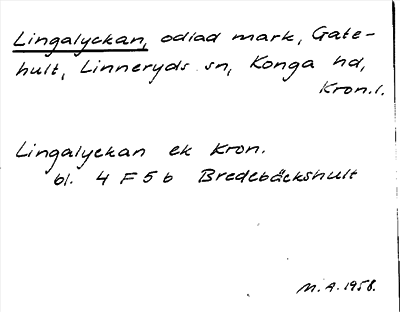 Lingalyckan, odlad mark, Gate-
hult, Linneryds sn, Konga hd,
Kron.l.
Lingalyckan ek Kron.
bl. 4 F 5 b Bredebäckshult
M.A. 1958.